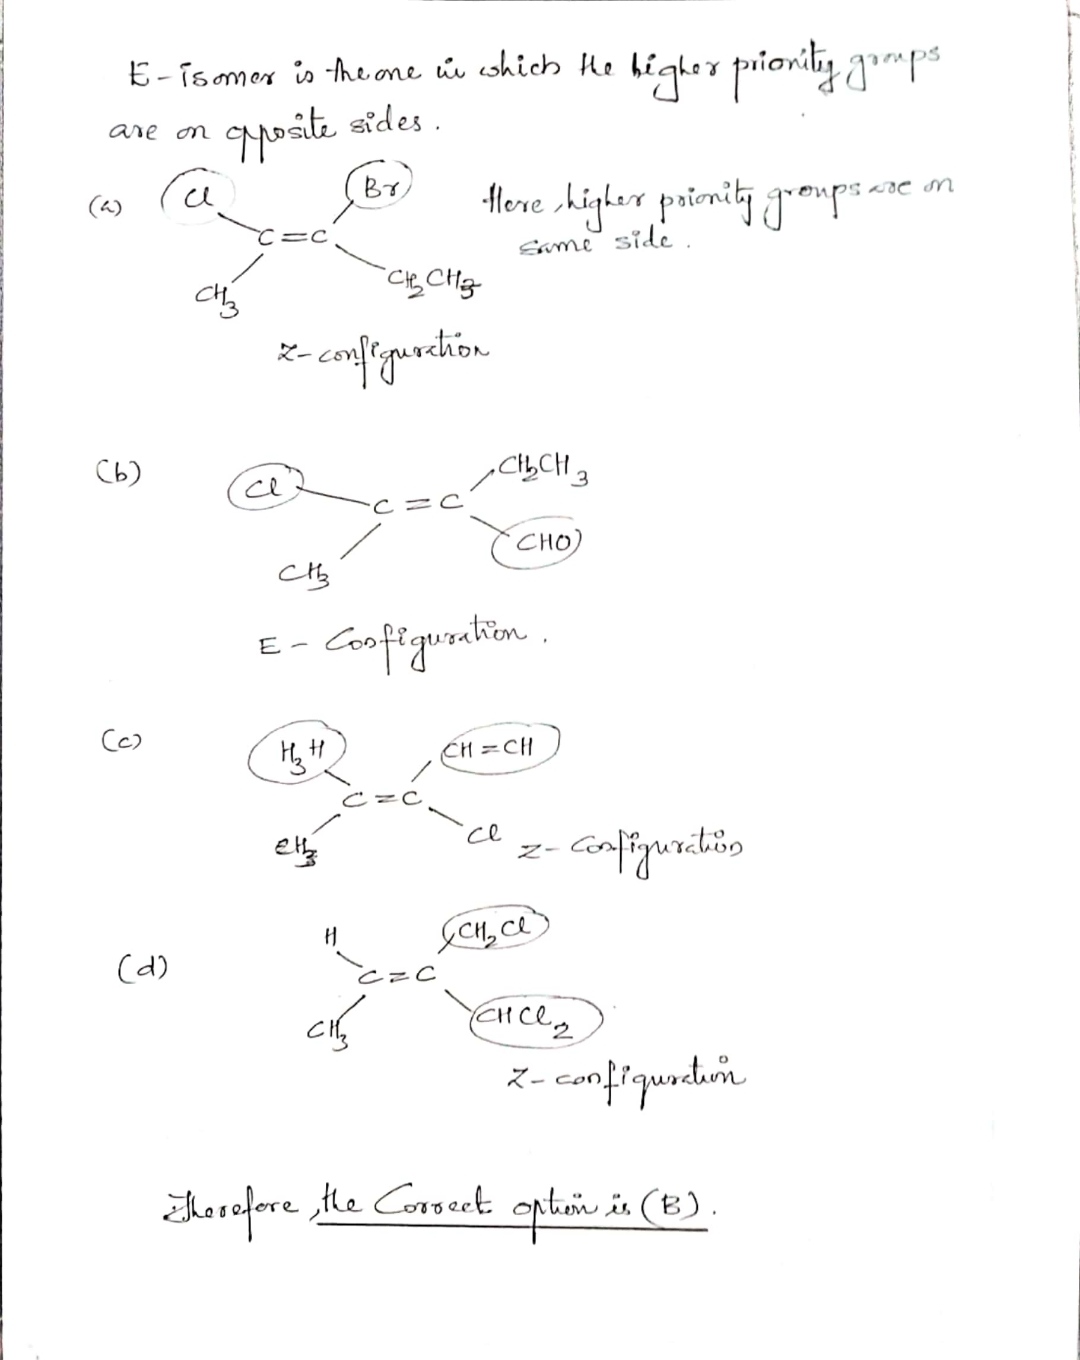 E-isomer is the one in which the higher priority groups
are on opposite sides.
(a) Cl Br Here, higher priority groups are on
same side.
C=C
CH3 CH2CH3
Z-configuration
(b) Cl CH2CH3
C=C
CH3 CHO
E- Configuration.
(c) H3H CH=CH
C=C
CH3 Cl Z- Configuration
(d) H CH2Cl
C=C
CH3 CHCl2
Z-configuration
Therefore, the Correct option is (B).